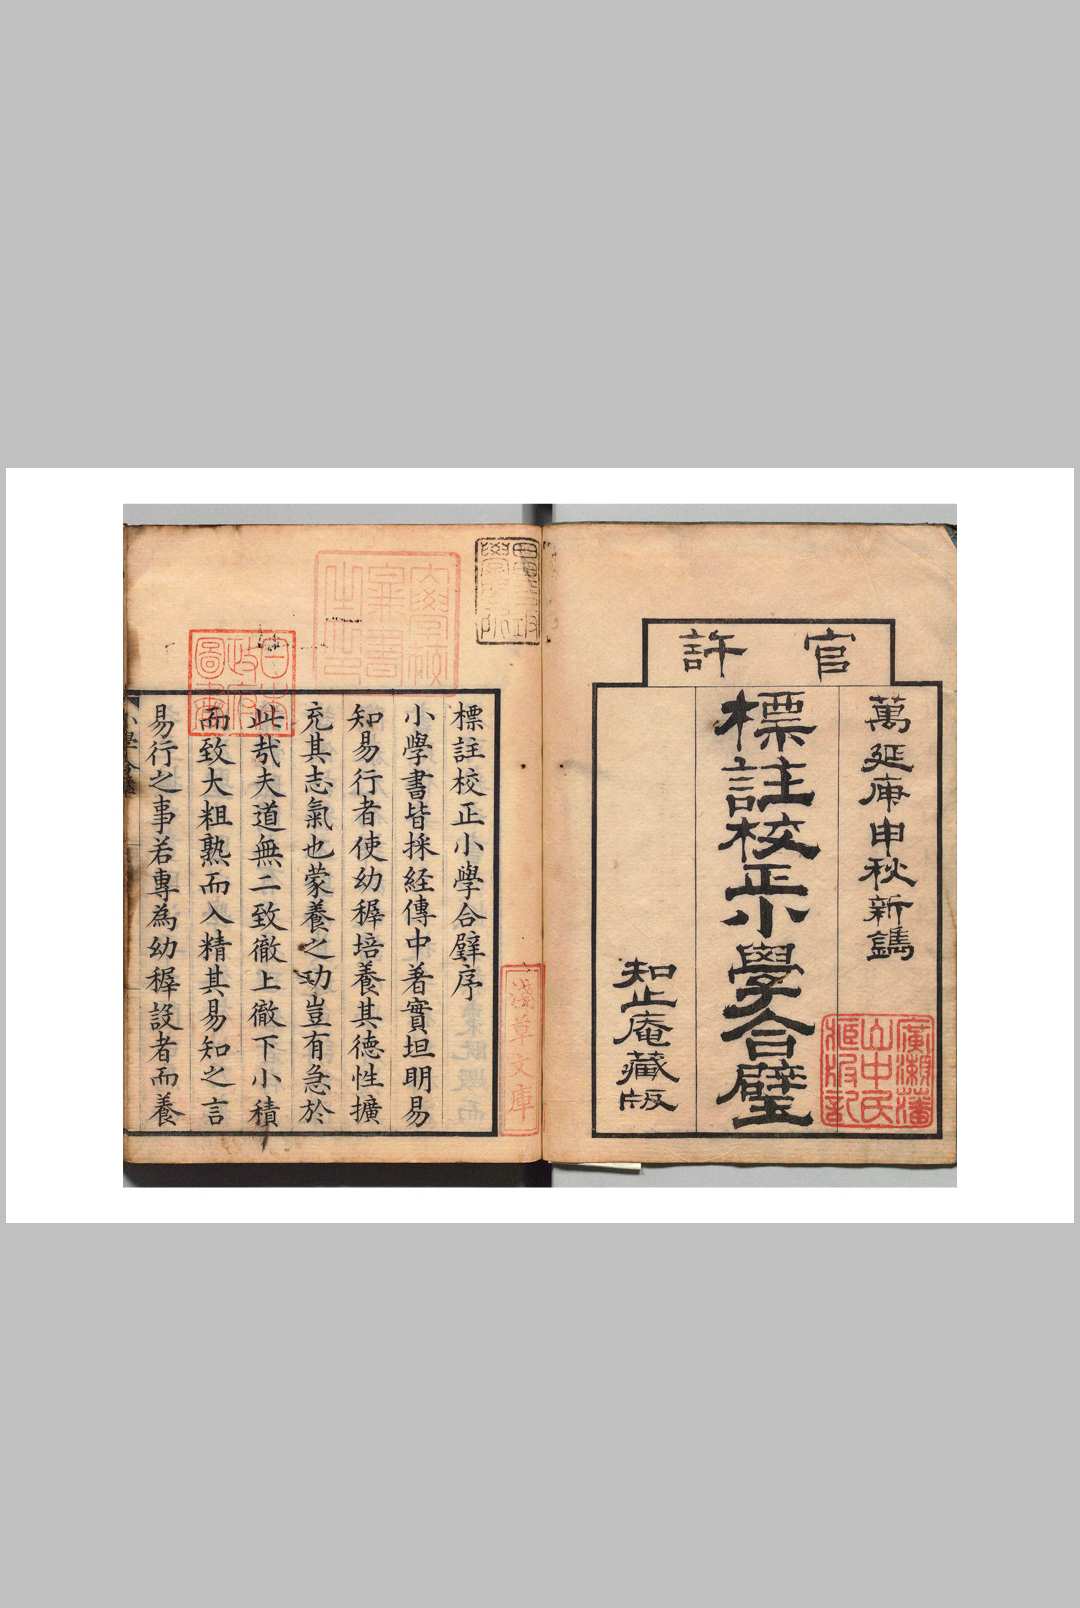 官許
萬延庚申秋新鐫
標註校正小學合璧
知止庵藏版
廣瀬藩
山中氏
樞版記
淺草文庫
標註校正小學合璧序
小學書皆採経傳中著實坦明易
知易行者使幼穉培養其德性擴
充其志氣也蒙養之功豈有急於
此㢤夫道無二致徹上徹下小積
而致大粗熟而入精其易知之言
易行之事若專為幼穉設者而養
日本
政府
圖書